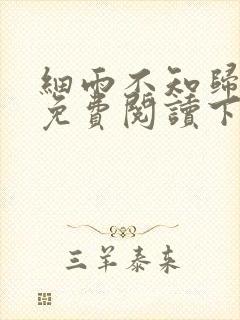 細雨不知歸
免費閱讀下
三羊泰来